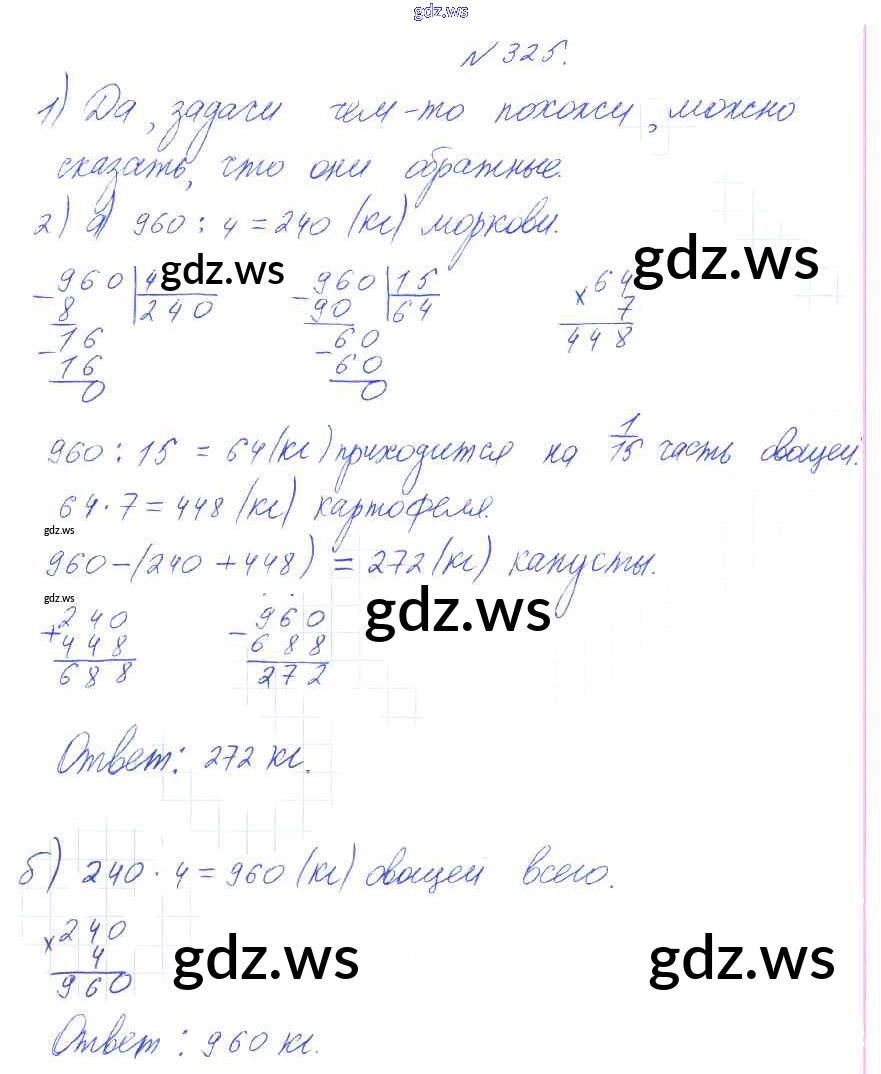 gdz.ws
N 325.
1) Да, задачи чем-то похожи, можно
сказать, что они обратные.
2) а) 960 : 4 = 240 (кг) моркови.
gdz.ws
gdz.ws
-960 | 4
8 | 240
-16
16
0
-960 | 15
90 | 64
-60
60
0
x 64
7
448
960 : 15 = 64 (кг) приходится на 1/15 часть овощей.
64 · 7 = 448 (кг) картофеля.
gdz.ws
960 - (240 + 448) = 272 (кг) капусты.
gdz.ws
gdz.ws
+240
448
688
-960
688
272
Ответ: 272 кг.
б) 240 · 4 = 960 (кг) овощей всего.
x 240
4
960
gdz.ws
gdz.ws
Ответ: 960 кг.